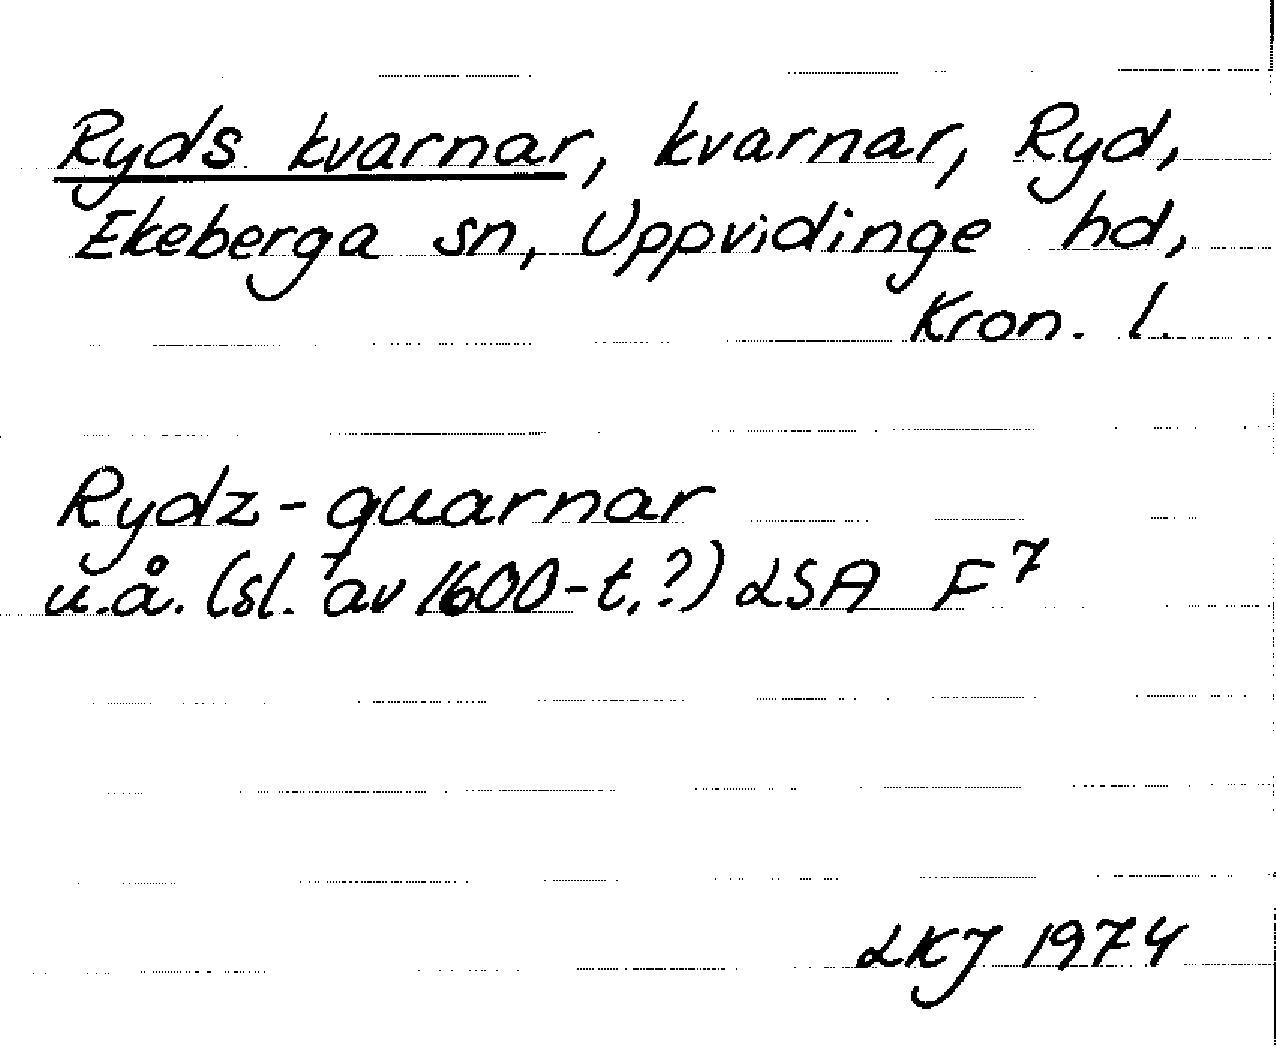 Ryds kvarnar, kvarnar, Ryd,
Ekeberga sn, Uppvidinge hd,
Kron. l.
Rydz-quarnar
u.å. (sl. av 1600-t.?) LSA F7
LKJ 1974